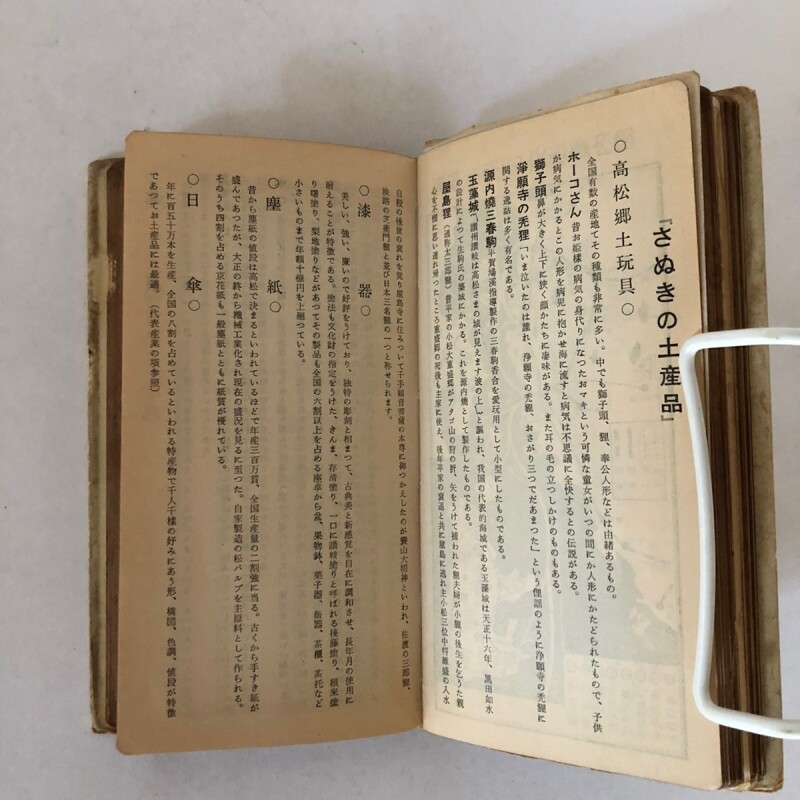 『さぬきの土産品』
○高松郷土玩具○
全国有数の産地でその種類も非常に多い。中でも獅子頭、狸、奉公人形などは由緒あるもの。
ホーコさん 昔お姫様の病気の身代りになつたおマキという可憐な童女がいつの間にか人形にかたどられたもので、子供
が病気にかかるとこの人形を病児に抱かせ海に流すと病気は不思議に全快するとの伝説がある。
獅子頭 鼻が大きく上下に狭く顔かたちに凄味がある。また耳の毛の立つしかけのものもある。
淨願寺の禿狸「いま泣いたのは誰れ、浄願寺の禿狸、おさがり三つでだあまつた」という俚謡のように浄願寺の禿狸に
関する逸話は多く有名である。
源内燒三春駒 平賀鳩渓指導製作の三春駒香合を愛玩用として小型にしたものである。
玉藻城「讃州讃岐は高松さまの城が見えます波の上」と謳われ、我国の代表的海城である玉藻城は天正十六年、黒田如水
の設計によつて生駒氏の築城にかかる。これを源内焼として製作したものである。
屋島狸（通称太三郎狸）昔平家の小松大重盛郷がアタゴ山の狩の折、矢をうけて捕われた狸夫婦が小狸の後生を乞うた親
心を不憫に思い逃れ帰つたところ重盛郷の死後も主家に使え、後年平家の衰退と共に屋島に逃れ主小松三位中将維盛の入水
自殺の後世の哀れを覚り屋島寺に住みついて千手観音菩薩の本尊に御つかえしたのが蓑山大明神といわれ、佐渡の三郎狸、
淡路の芝衛門狸と並び日本三名狸の一つと称せられます。
○漆器○
美しい、強い、廉いので好評をうけており、独特の彫刻と相まつて、古典美と新感覚を自在に調和させ、長年月の使用に
耐えることが特徴である。塗法も文化財の指定をうけた、きんま、存清塗り、一口に讃岐塗りと呼ばれる後藤塗り、根来塗
り曙塗り、梨地塗りなどがあつてその製品も全国の六割以上を占める座卓から盆、果物鉢、菓子器、飯器、茶櫃、茶托など
小さいものまで年額十億円を上廻つている。
○塵紙○
昔から塵紙の値段は高松で決まるといわれているほどで年産三百万貫、全国生産量の二割強に当る。古くから手すき紙が
盛んであつたが、大正の終から機械工業化され現在の盛況を見るに至つた。自家製造の松パルプを主原料として作られる。
そのうち四割を占める京花紙も一般塵紙とともに紙質が優れている。
○日傘○
年に百五十万本を生産、全国の八割を占めているといわれる特産物で千人千様の好みにあう形、構図、色調、値段が特徴
であつてお土産品には最適。（代表産業の項参照）